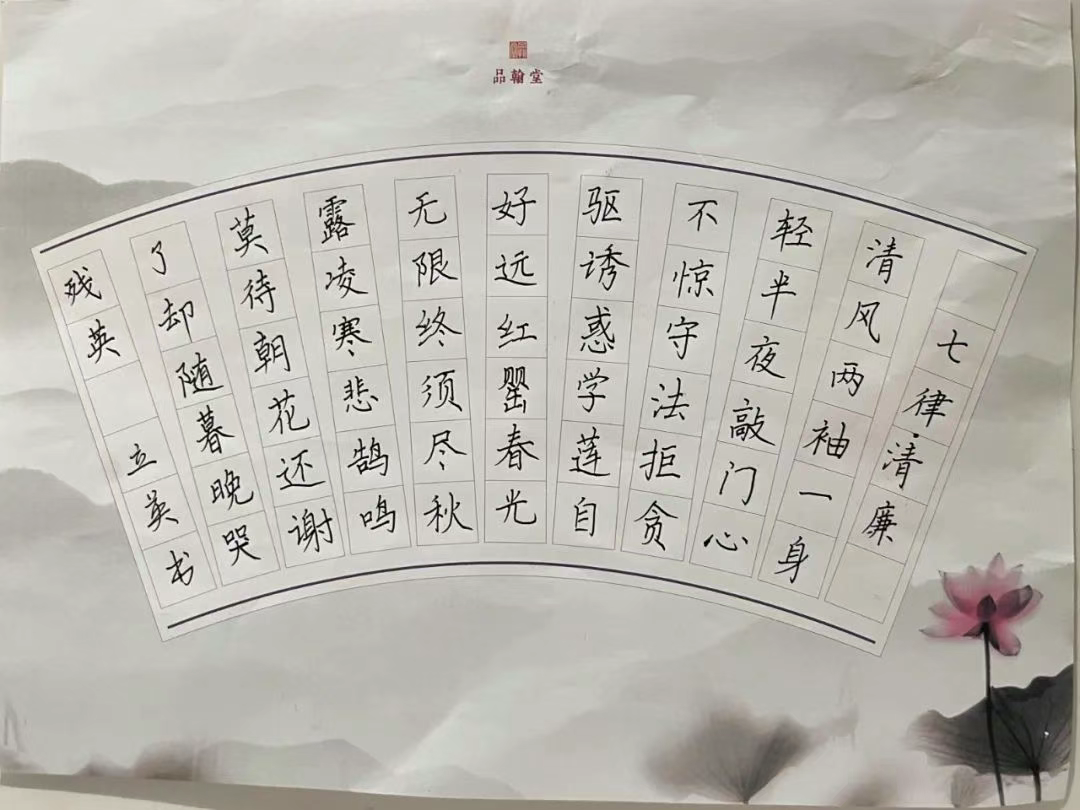 品翰堂
七律·清廉
清风两袖一身
轻半夜敲门心
不惊守法拒贪
驱诱惑学莲自
好远红罂春光
无限终须尽秋
露凌寒悲鹄鸣
莫待朝花还谢
了却随暮晚哭
残英 立英书